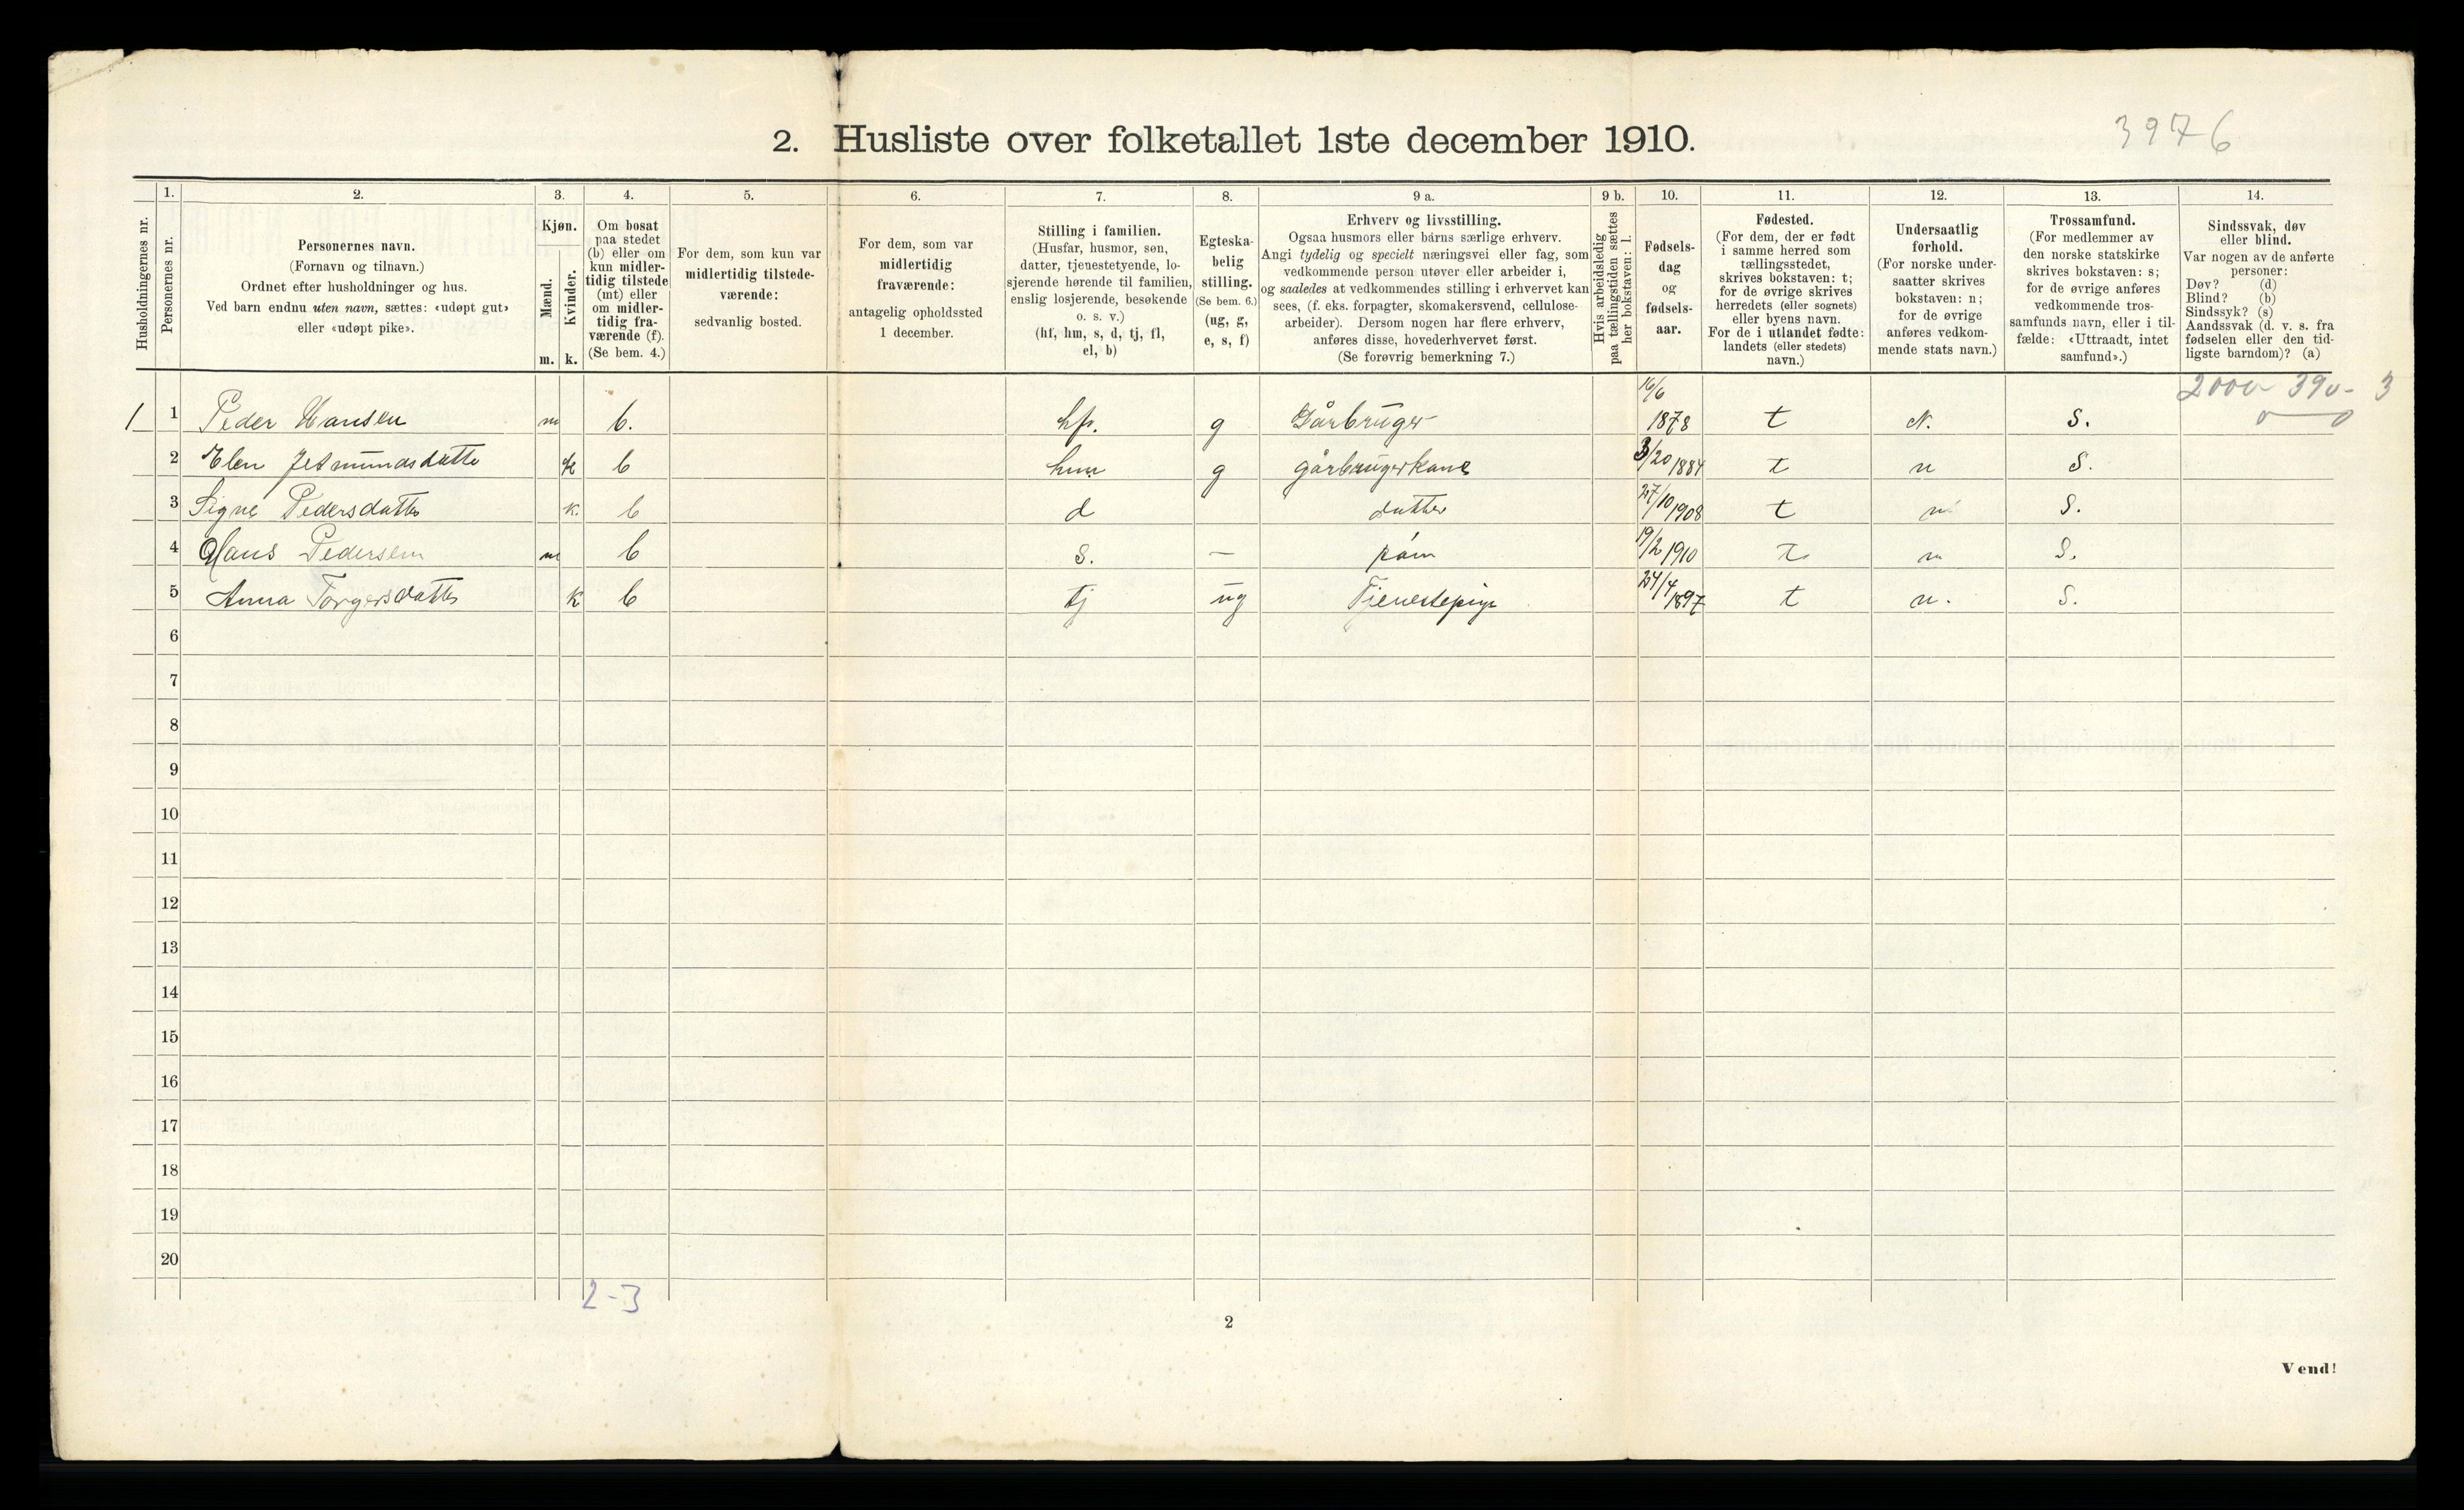 3976
2. Husliste over folketallet 1ste december 1910.
Husholdningernes nr.
1.
Personernes nr.
2.
Personernes navn.
(Fornavn og tilnavn.)
Ordnet efter husholdninger og hus.
Ved barn endnu uten navn, sættes: «udøpt gut»
eller «udøpt pike».
3.
Kjøn.
Mænd.
m.
Kvinder.
k.
4.
Om bosat
paa stedet
(b) eller om
kun midler-
tidig tilstede
(mt) eller
om midler-
tidig fra-
værende (f).
(Se bem. 4.)
5.
For dem, som kun var
midlertidig tilstede-
værende:
sedvanlig bosted.
6.
For dem, som var
midlertidig
fraværende:
antagelig opholdssted
1 december.
7.
Stilling i familien.
(Husfar, husmor, søn,
datter, tjenestetyende, lo-
sjerende hørende til familien,
enslig losjerende, besøkende
o. s. v.)
(hf, hm, s, d, tj, fl,
el, b)
8.
Egteska-
belig
stilling.
(Se bem. 6.)
(ug, g,
e, s, f)
9 a.
Erhverv og livsstilling.
Ogsaa husmors eller barns særlige erhverv.
Angi tydelig og specielt næringsvei eller fag, som
vedkommende person utøver eller arbeider i,
og saaledes at vedkommendes stilling i erhvervet kan
sees, (f. eks. forpagter, skomakersvend, cellulose-
arbeider). Dersom nogen har flere erhverv,
anføres disse, hovederhvervet først.
(Se forøvrig bemerkning 7.)
9 b.
Hvis arbeidsledig
paa tællingstiden sættes
her bokstaven: l.
10.
Fødsels-
dag
og
fødsels-
aar.
11.
Fødested.
(For dem, der er født
i samme herred som
tællingsstedet,
skrives bokstaven: t;
for de øvrige skrives
herredets (eller sognets)
eller byens navn.
For de i utlandet fødte:
landets (eller stedets)
navn.)
12.
Undersaatlig
forhold.
(For norske under-
saatter skrives
bokstaven: n;
for de øvrige
anføres vedkom-
mende stats navn.)
13.
Trossamfund.
(For medlemmer av
den norske statskirke
skrives bokstaven: s;
for de øvrige anføres
vedkommende tros-
samfunds navn, eller i til-
fælde: «Uttraadt, intet
samfund».)
14.
Sindssvak, døv
eller blind.
Var nogen av de anførte
personer:
Døv? (d)
Blind? (b)
Sindssyk? (s)
Aandssvak (d. v. s. fra
fødselen eller den tid-
ligste barndom)? (a)
1 1 Peder Hansen m b. hf. g Gårbruger 16/6 1878 t N. S.
2 Elen Jetmundsdatte k b hm g gårbrugerkone 3/20 1884 t n S.
3 Signe Pedersdatte k. b d datter 27/10 1908 t n S.
4 Hans Pedersen m b s. — 19/2 1910 t n S.
5 Anna Torgersdatte k b tj ug Tjenestepige 24/4 1897 t n. S.
6
7
8
9
10
11
12
13
14
15
16
17
18
19
20
2-3
2
Vend!